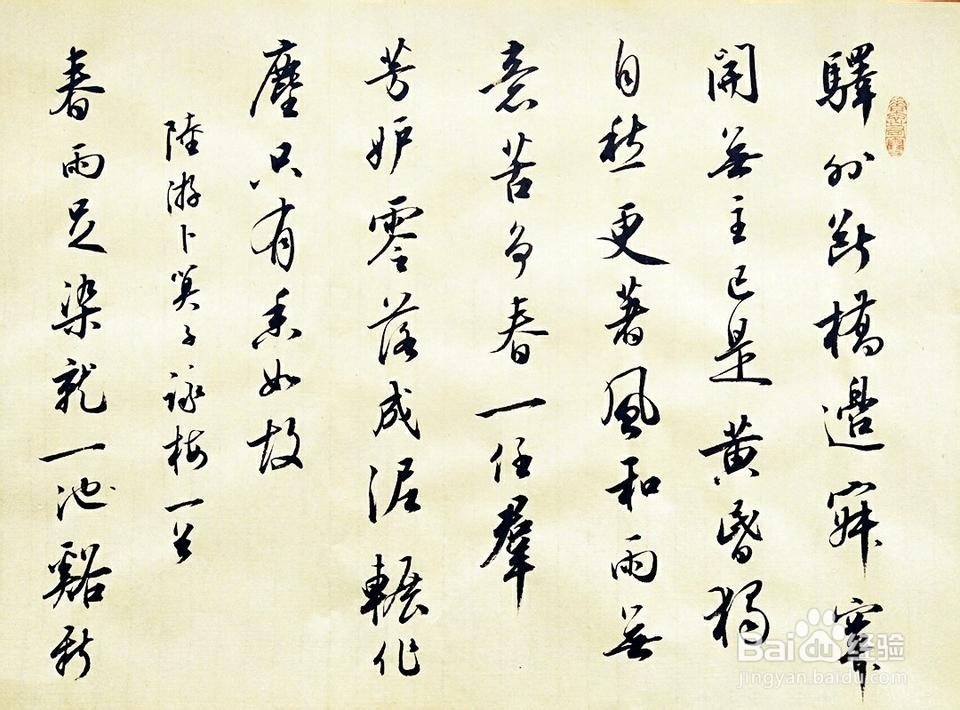 驛外斷橋邊寂寞
開無主已是黃昏獨
自愁更著風和雨無
意苦爭春一任羣
芳妒零落成泥輾作
塵只有香如故
陸游卜算子詠梅一首
春雨足染就一池谿新
Baidu经验
jingyan.baidu.com